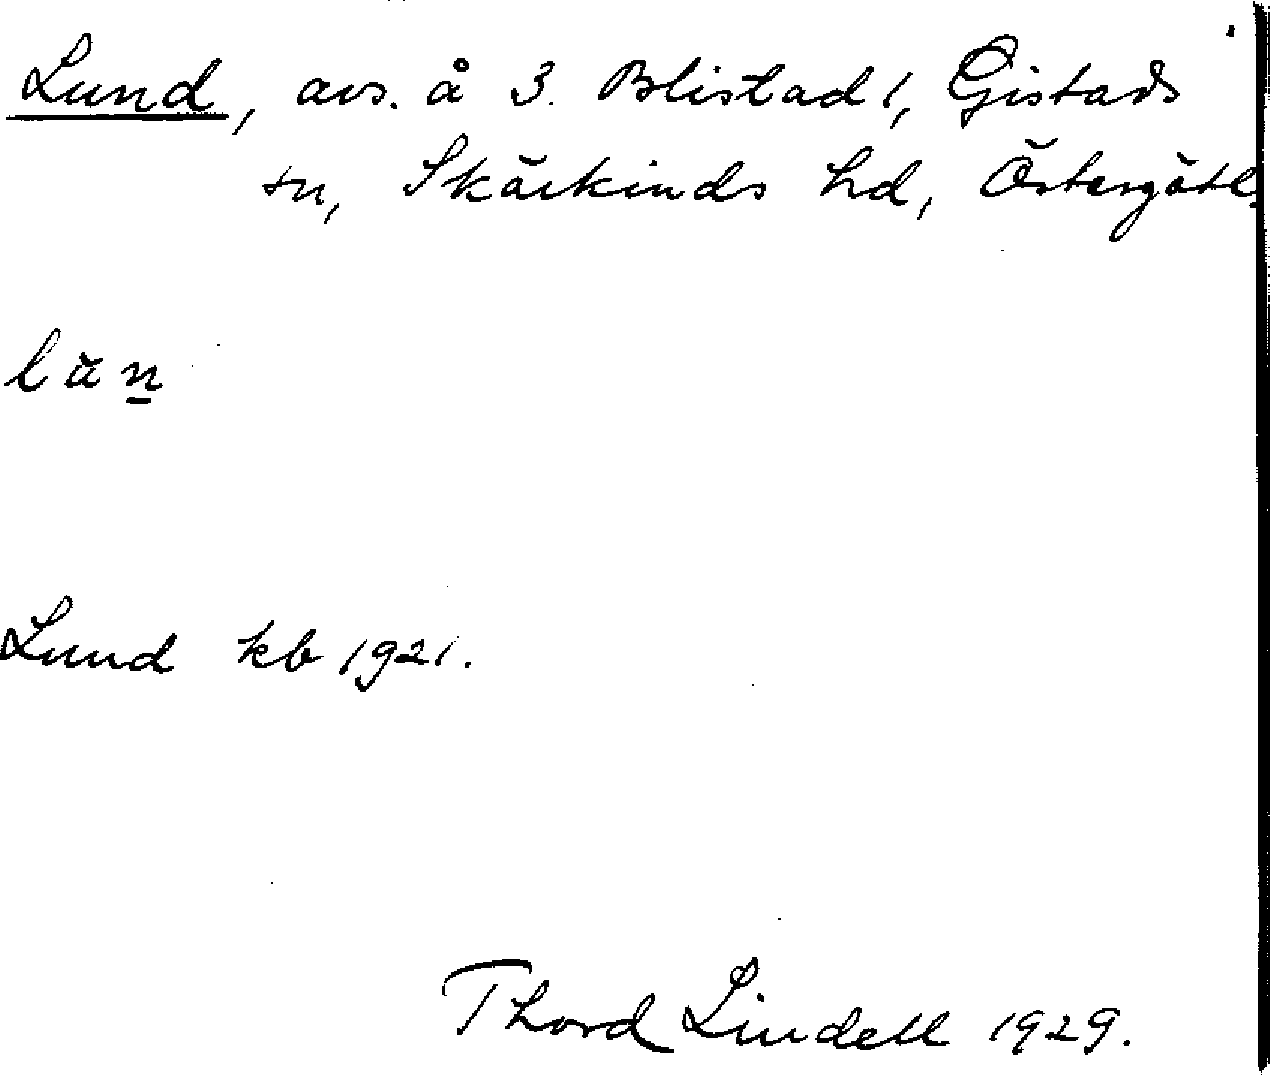 Lund, avs. å 3. Blistad 1, Gistads
sn, Skärkinds hd, Östergötl.
lun
Lund kb 1921.
Thord Lindell 1929.